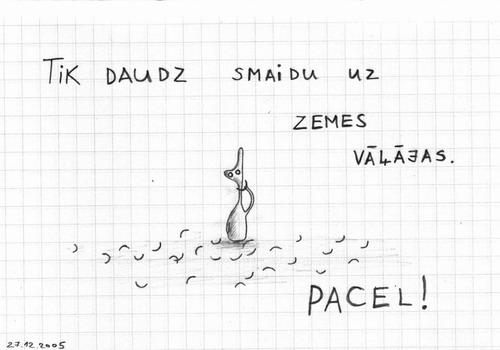 TiK DAUDZ SMAiDU UZ
ZEMES
VĀĻĀJAS.
PACEL!
27.12.2005